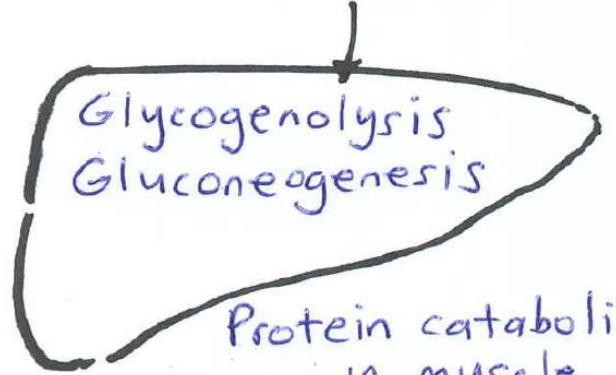 Glycogenolysis
Gluconeogenesis
Protein cataboli
in muscle